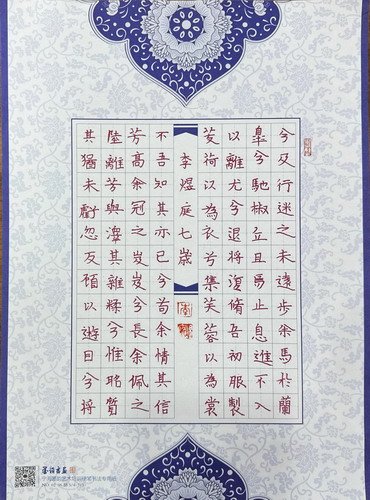 兮及行迷之未遠步余馬於蘭
皋兮馳椒丘且焉止息進不入
以離尤兮退將復脩吾初服製
芰荷以為衣兮集芙蓉以為裳
李煜庭七歲
不吾知其亦已兮苟余情其信
芳高余冠之岌岌兮長余佩之
陸離芳與澤其雜糅兮惟昭質
其猶未虧忽反顧以遊目兮將